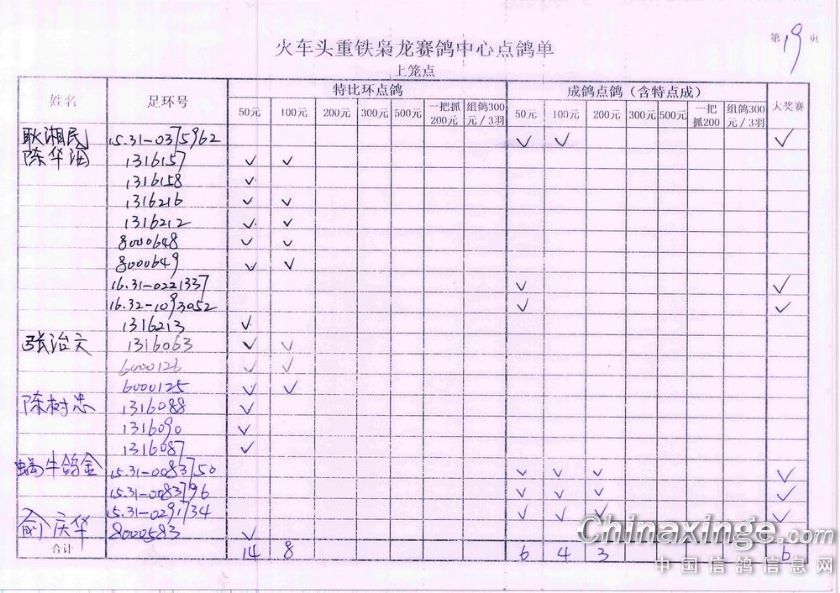 第19页
火车头重铁枭龙赛鸽中心点鸽单
上笼点
姓名 足环号 特比环点鸽 成鸽点鸽（含特点成） 大奖赛
50元 100元 200元 300元 500元 一把抓200元 组鸽300元/3羽 50元 100元 200元 300元 500元 一把抓200 组鸽300元/3羽
耿湘民 15.31-0375962 ✓ ✓ ✓
陈华海 1316157 ✓ ✓
1316158 ✓
1316216 ✓ ✓
1316212 ✓ ✓
8000648 ✓ ✓
8000649 ✓ ✓
16.31-0221337 ✓ ✓
16.32-1093052 ✓ ✓
1316213 ✓
张治文 1316063 ✓ ✓
6000126 ✓ ✓
6000125 ✓ ✓
陈树忠 1316088 ✓
1316090 ✓
1316087 ✓
蜗牛鸽舍 15.31-0083750 ✓ ✓ ✓ ✓
15.31-0083796 ✓ ✓ ✓ ✓
15.31-0291734 ✓ ✓ ✓ ✓
俞庆华 8000583 ✓
合计 14 8 6 4 3 6
Chinaxinge.com
中国信鸽信息网